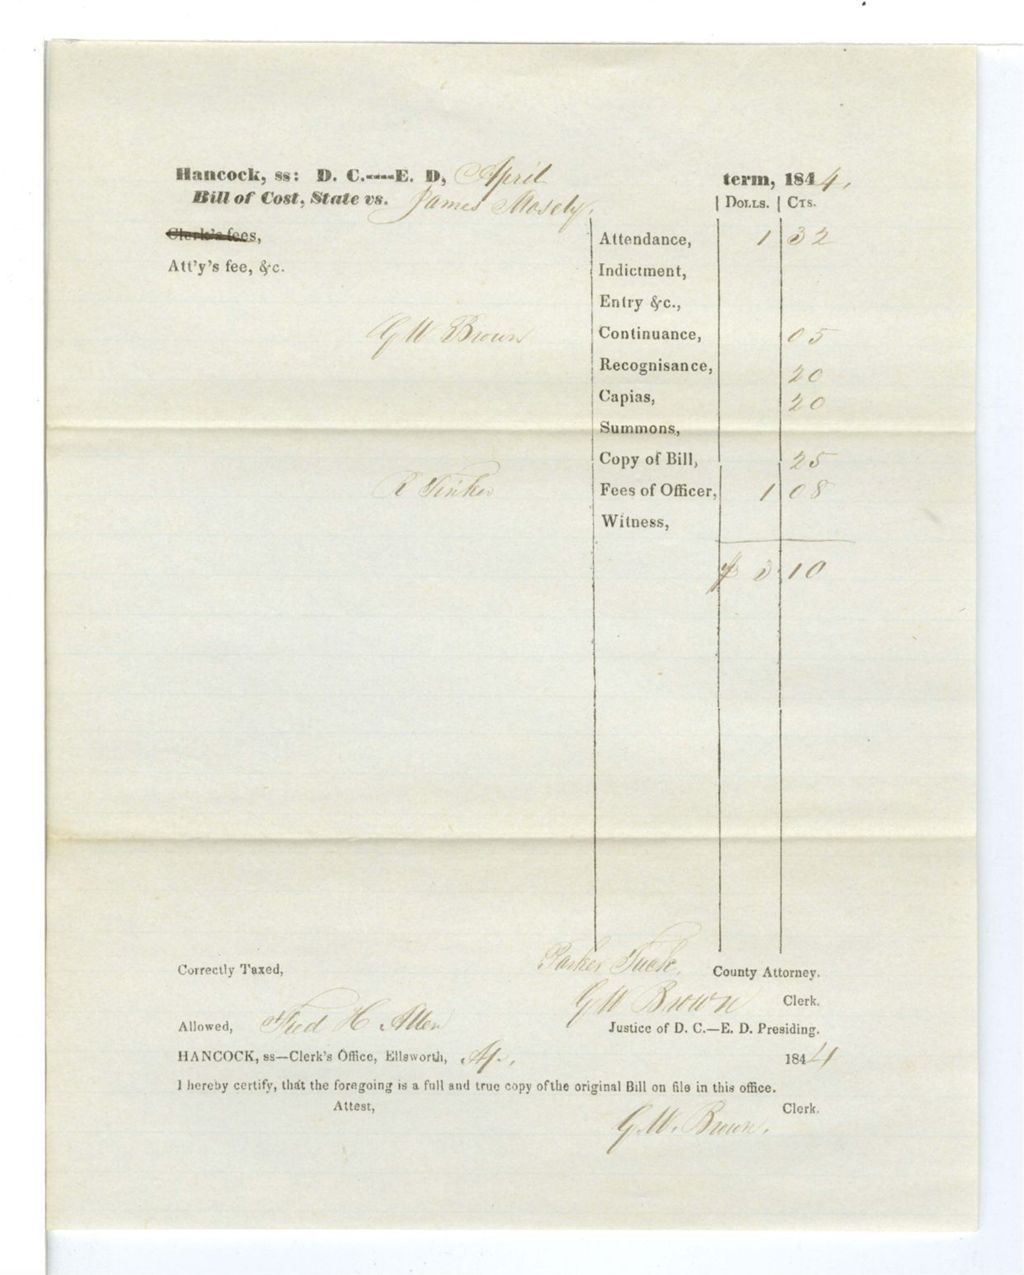 Hancock, ss: D. C.----E. D, April term, 1844,
Bill of Cost, State vs. James Mosely. | Dolls. | Cts.
Clerk's fees, Attendance, 1 32
Att'y's fee, &c. Indictment,
Entry &c.,
G W Brown Continuance, 05
Recognisance, 20
Capias, 20
Summons,
Copy of Bill, 25
R Tinker Fees of Officer, 1 08
Witness,
$ 3 10
Correctly Taxed, Parker Tuck, County Attorney.
G W Brown Clerk.
Allowed, Fred H Allen Justice of D. C.—E. D. Presiding.
HANCOCK, ss—Clerk's Office, Ellsworth, Ap., 1844
I hereby certify, that the foregoing is a full and true copy of the original Bill on file in this office.
Attest, G. W. Brown. Clerk.